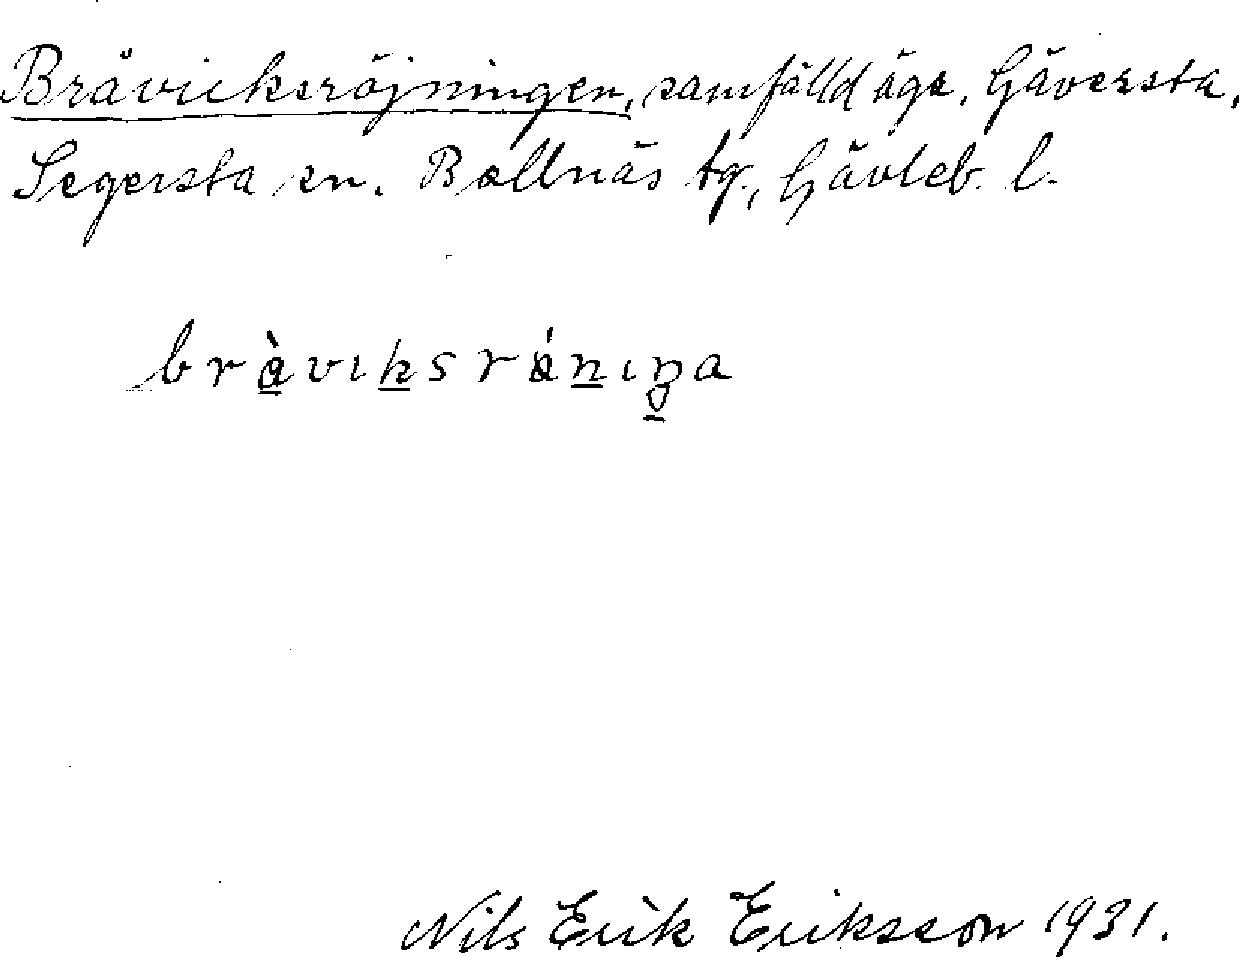 Bråvicksröjningen, samfälld äga, Gäversta,
Segersta sn. Bollnäs tg., Gävleb. l.
bràviksrǿniŋa
Nils Erik Eriksson 1931.